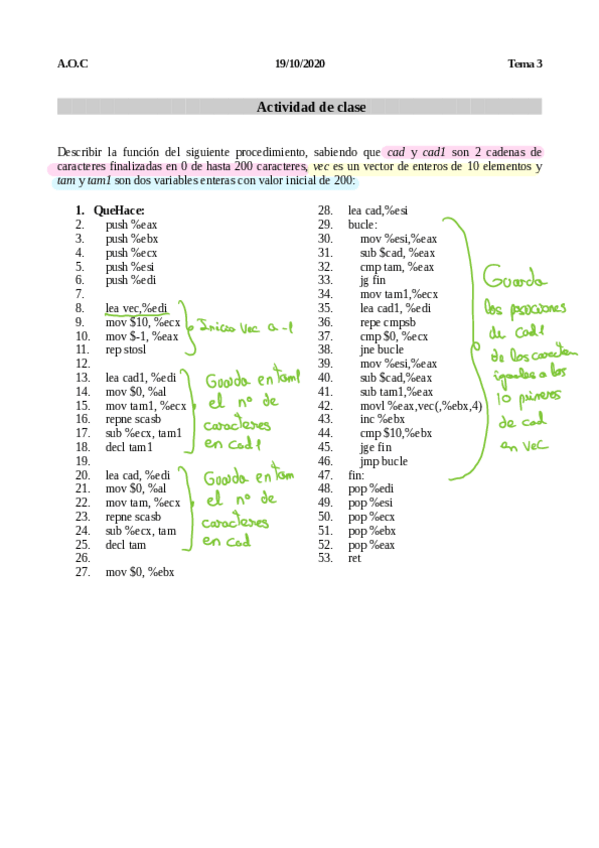 A.O.C 19/10/2020 Tema 3
Actividad de clase
Describir la función del siguiente procedimiento, sabiendo que cad y cad1 son 2 cadenas de
caracteres finalizadas en 0 de hasta 200 caracteres, vec es un vector de enteros de 10 elementos y
tam y tam1 son dos variables enteras con valor inicial de 200:
1. QueHace:
2. push %eax
3. push %ebx
4. push %ecx
5. push %esi
6. push %edi
7.
8. lea vec,%edi
9. mov $10, %ecx
10. mov $-1, %eax
11. rep stosl
12.
13. lea cad1, %edi
14. mov $0, %al
15. mov tam1, %ecx
16. repne scasb
17. sub %ecx, tam1
18. decl tam1
19.
20. lea cad, %edi
21. mov $0, %al
22. mov tam, %ecx
23. repne scasb
24. sub %ecx, tam
25. decl tam
26.
27. mov $0, %ebx
Inicia Vec a -1
Guarda en tam1
el nº de
caracteres
en Cad1
Guarda en tam
el nº de
caracteres
en cad
28. lea cad,%esi
29. bucle:
30. mov %esi,%eax
31. sub $cad, %eax
32. cmp tam, %eax
33. jg fin
34. mov tam1,%ecx
35. lea cad1, %edi
36. repe cmpsb
37. cmp $0, %ecx
38. jne bucle
39. mov %esi,%eax
40. sub $cad,%eax
41. sub tam1,%eax
42. movl %eax,vec(,%ebx,4)
43. inc %ebx
44. cmp $10,%ebx
45. jge fin
46. jmp bucle
47. fin:
48. pop %edi
49. pop %esi
50. pop %ecx
51. pop %ebx
52. pop %eax
53. ret
Guarda
las posiciones
de cad1
de los caracteres
iguales a los
10 primeros
de cad
en vec